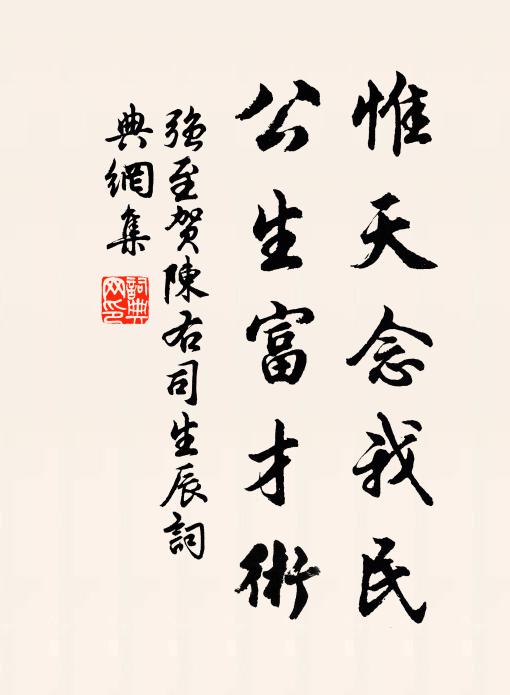 惟天念我民
公生富才術
強至賀陳右司生辰詞
典網集
詞典網印